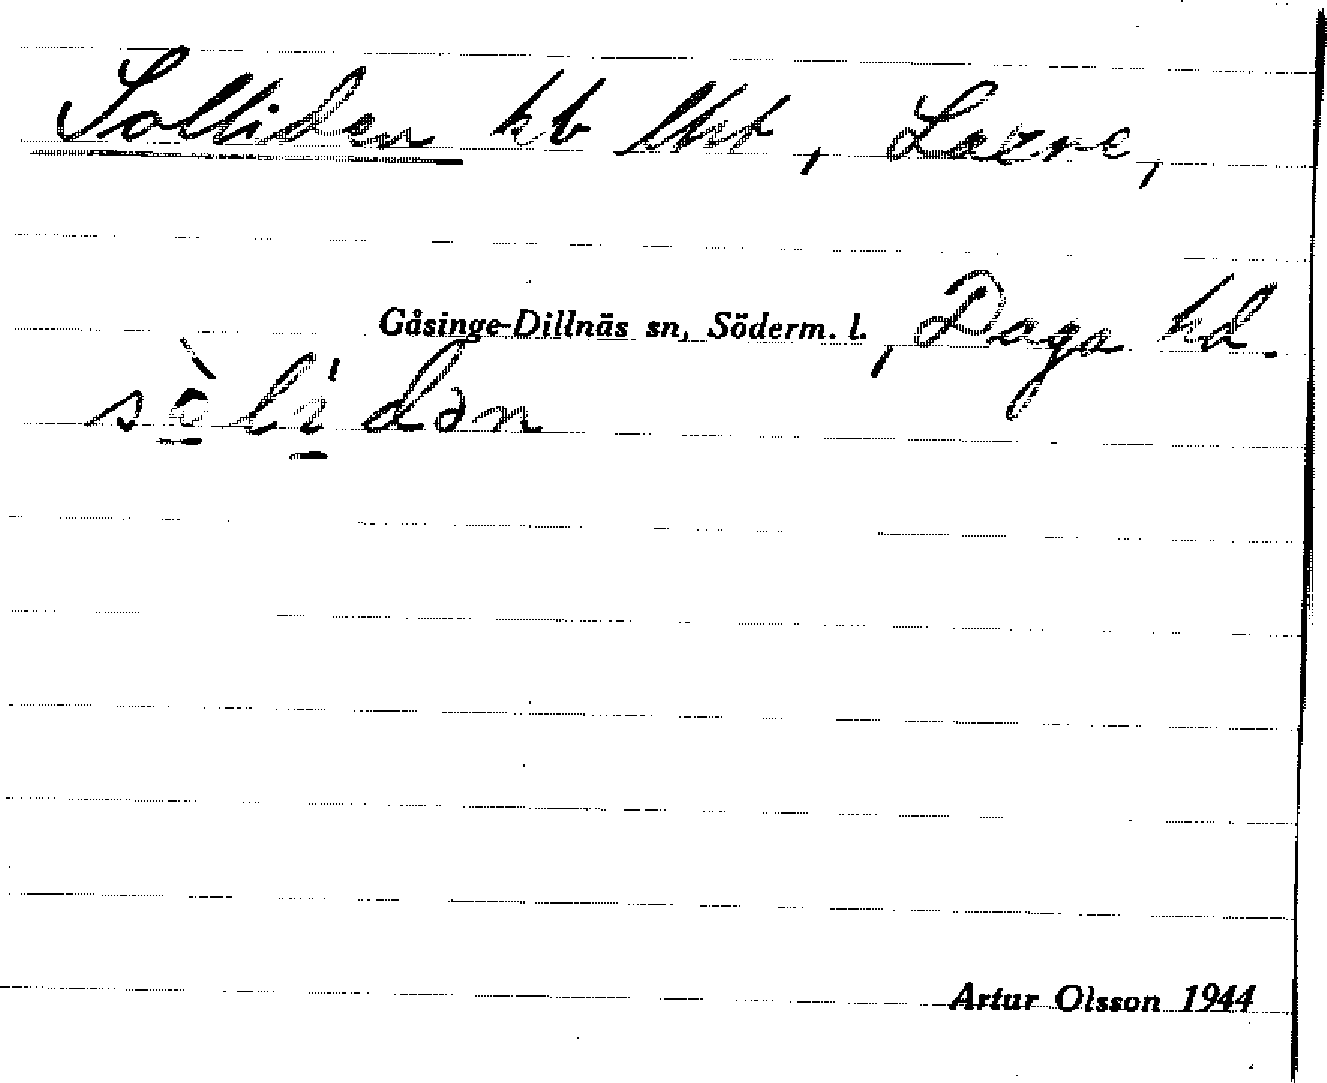 Solliden kb lht, Laxne,
Gåsinge-Dillnäs sn, Söderm. l., Daga hd.
sò̱lì̱dən
Artur Olsson 1944